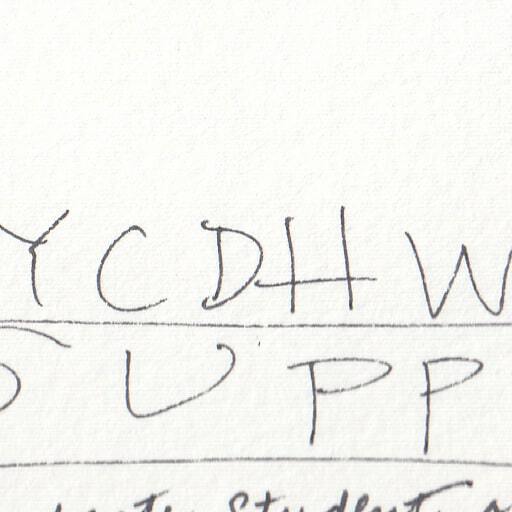 YCDHW
SUPP
Student